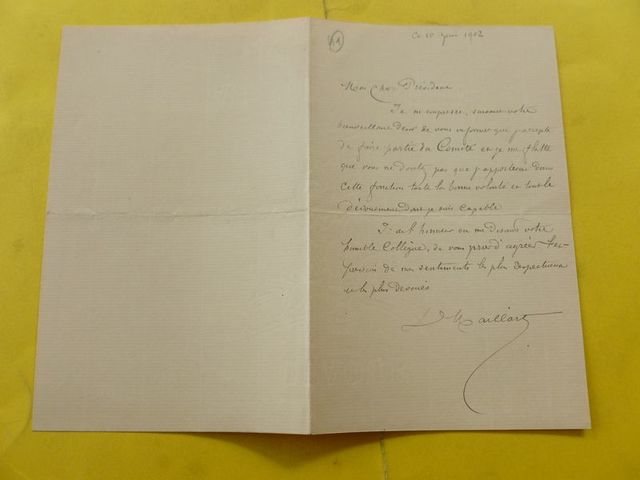 Ce 10 Juin 1902
Mon Cher Président
Je m'empresse, suivant votre
bienveillant désir de vous informer que j'accepte
de faire partie du Comité et je me flatte
que vous ne doutez pas que j'apporterai dans
cette fonction toute la bonne volonté et tout le
dévouement dont je suis capable
J'ai l'honneur en me disant votre
humble Collègue, de vous prier d'agréer l'ex-
pression de mes sentiments les plus respectueux
et les plus dévoués
Maillart